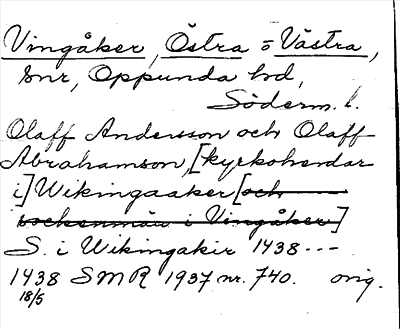 Vingåker, Östra o Västra,
snr, Oppunda hd,
Söderm. l.
Olaff Andersson och Olaff
Abrahamson, [kyrkoherdar
i] Wikingaaker [och
sockenmän i Vingåker]
S. i Wikingakir 1438 ---
1438 SMR 1937 nr. 740. orig.
18/5